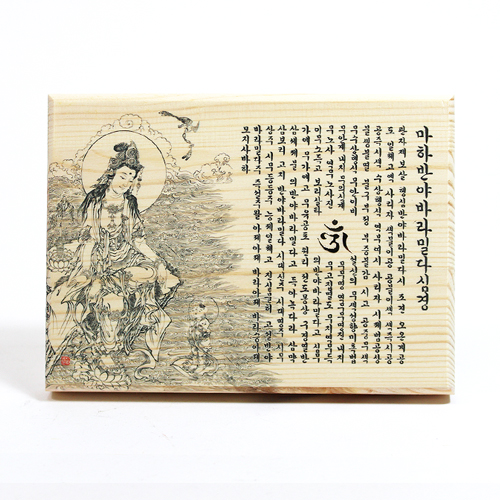 마하반야바라밀다심경
관자재보살 행심반야바라밀다시 조견 오온개공
도 일체고액 사리자 색불이공 공불이색 색즉시공
공즉시색 수상행식 역부여시 사리자 시제법공상
불생불멸 불구부정 부증불감 시고 공중무색
무수상행식 무안이비설신의 무색성향미촉법
무안계 내지 무의식계 무무명 역무무명진 내지
무노사 역무노사진 무고집멸도 무지역무득
이무소득고 보리살타 의반야바라밀다고 심무
가애 무가애고 무유공포 원리 전도몽상 구경열반
삼세제불 의반야바라밀다고 득아뇩다라 삼먁
삼보리 고지 반야바라밀다 시대신주 시대명주 시무
상주 시무등등주 능제일체고 진실불허 고설반야
바라밀다주 즉설주왈 아제아제 바라아제 바라승아제
모지사바하